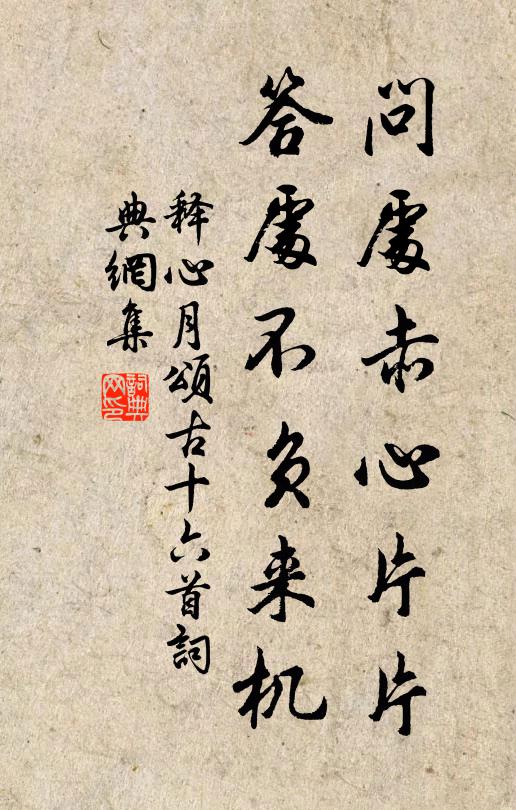 問處赤心片片
答處不负来机
释心月頌古十六首詞
典網集
詞典网印